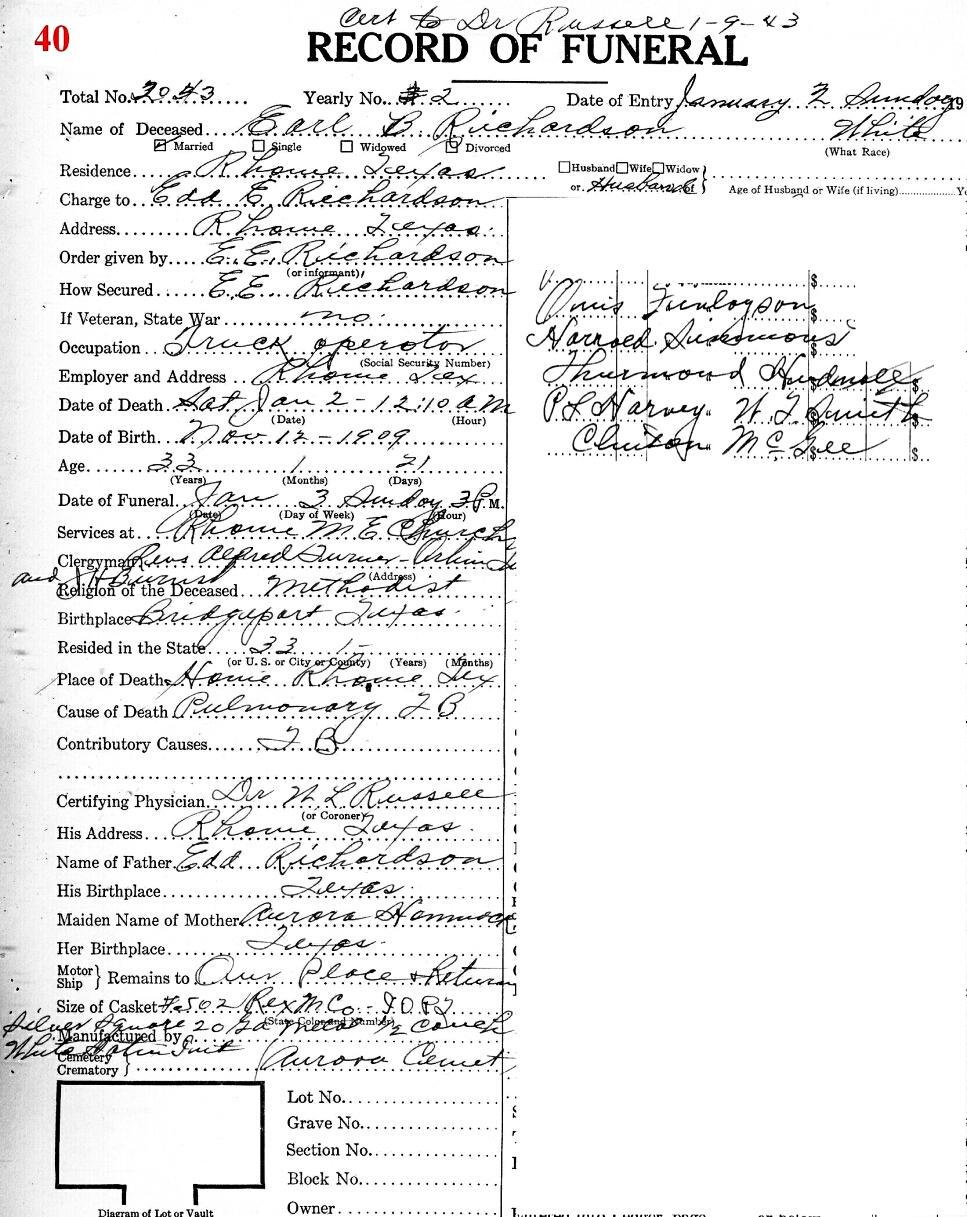 Cert to Dr Russell 1-9-43
40
RECORD OF FUNERAL
Total No. 2043 Yearly No. # 2 Date of Entry January 2 Sunday 19
Name of Deceased Earl B Richardson White
☒ Married ☐ Single ☐ Widowed Divorced (What Race)
Residence Rhome Texas ☐ Husband ☐ Wife ☐ Widow
or Husband of Age of Husband or Wife (if living)
Charge to Edd E. Richardson
Address Rhome Texas
Order given by E.E. Richardson
(or informant)
How Secured E.E. Richardson
If Veteran, State War no.
Occupation Truck operator
(Social Security Number)
Employer and Address Rhome Tex
Date of Death Sat. Jan 2 - 12:10 A M
(Date) (Hour)
Date of Birth Nov 12 - 1909
Age 33 1 21
(Years) (Months) (Days)
Date of Funeral Jan 3 Sunday 3 P.M.
(Date) (Day of Week) (Hour)
Services at Rhome M.E. Church
Clergyman Revs Alfred Turner -
(Address)
and
Religion of the Deceased Methodist
Birthplace Bridgeport Texas
Resided in the State 33 1 -
(or U. S. or City or County) (Years) (Months)
Place of Death Home Rhome Tex
Cause of Death Pulmonary T B
Contributory Causes T B
Certifying Physician Dr W L Russell
(or Coroner)
His Address Rhome Texas
Name of Father Edd Richardson
His Birthplace Texas
Maiden Name of Mother Aurora Hammock
Her Birthplace Texas
Motor
Ship } Remains to Our Place & Return
Size of Casket #502 Rex M Co -
(State Color and Number)
Silver Square 20 Ga Metal 1/2 couch
Manufactured by
White Satin Int
Cemetery
Crematory } Aurora Cemet
Lot No.
Grave No.
Section No.
Block No.
Owner
Diagram of Lot or Vault
$
Onis Finlayson $
Harrold Simmons $
Thurmond $
P L Harvey W T Smith $ $
Clinton McGee $ $